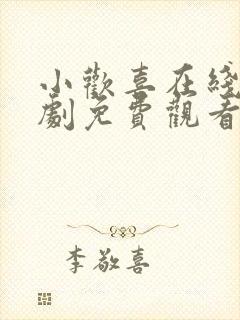 小歡喜在綫
劇免費觀看
李敬喜